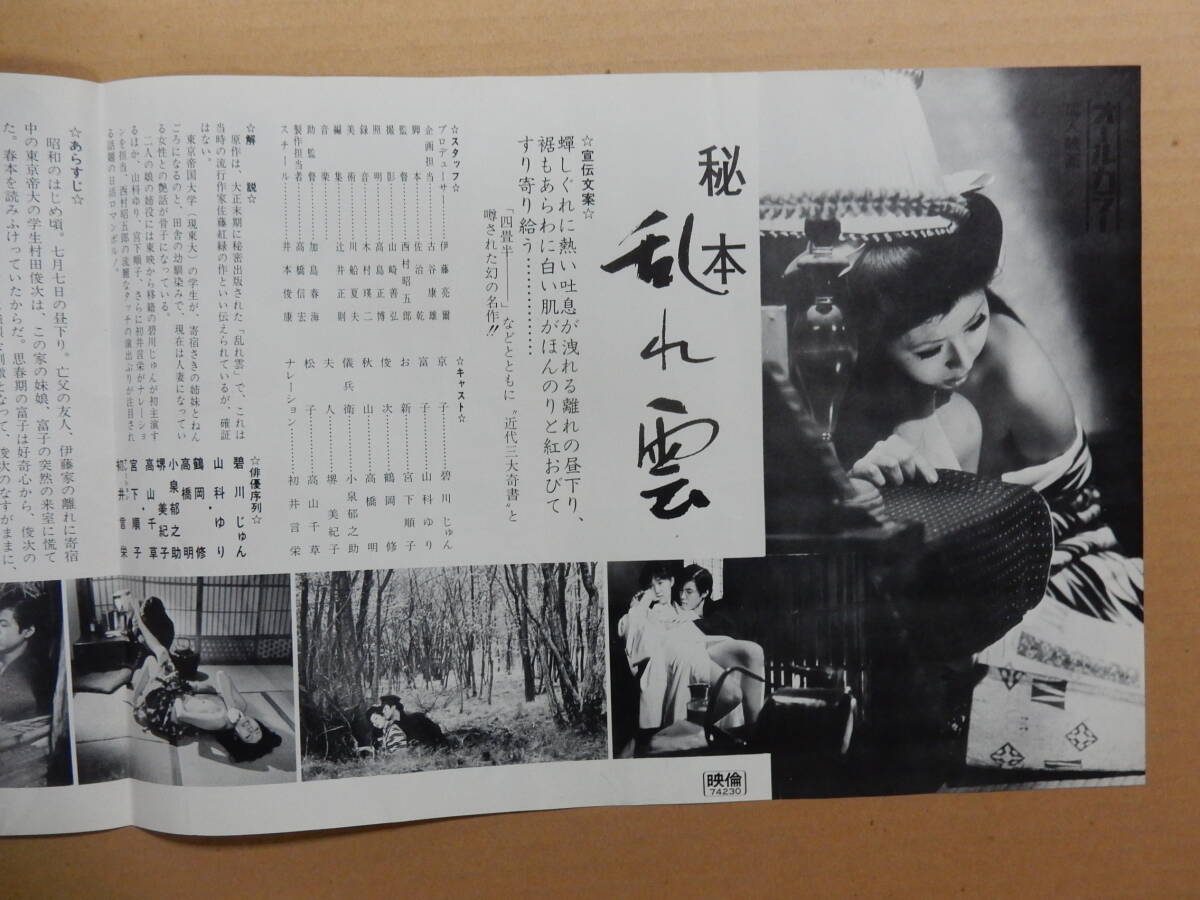 オールカラー
成人映画
秘本
乱れ雲
☆宣伝文案☆
蟬しぐれに熱い吐息が洩れる離れの昼下り、
裾もあらわに白い肌がほんのりと紅おびて
すり寄り給う…………
「四畳半――」などとともに〝近代三大奇書〟と
噂された幻の名作!!
☆スタッフ☆
プロデューサー……伊藤亮爾
企画担当……古谷康雄
脚本……佐治乾
監督……西村昭五郎
撮影……山崎善弘
照明……高島正博
録音……木村瑛二
美術……川船夏夫
編集……辻井正則
音楽
助監督……加島春海
製作担当者……高橋信宏
スチール……井本俊康
☆キャスト☆
京子……碧川じゅん
富子……山科ゆり
お新……宮下順子
俊次……鶴岡修
秋山……高橋明
儀兵衛……小泉郁之助
夫人……堺美紀子
松子……高山千草
ナレーション……初井言栄
☆解説☆
原作は、大正末期に秘密出版された「乱れ雲」で、これは
当時の流行作家佐藤紅緑の作といい伝えられているが、確証
はない。
東京帝国大学(現東大)の学生が、寄宿さきの姉妹とねん
ごろになるのと、田舎の幼馴染みで、現在は人妻になってい
る女性との艶話が骨子になっている。
二人の娘の姉役には東映から移籍の碧川じゅんが初主演す
るほか、山科ゆり、宮下順子、さらに初井言栄がナレーショ
ンを担当。西村昭五郎の流麗なタッチの演出ぶりが注目され
る話題の日活ロマンポルノ。
☆俳優序列☆
碧川じゅん
山科・ゆり
鶴岡修
高橋明
小泉郁之助
堺美紀子
高山千草
宮下・順子
初井言栄
☆あらすじ☆
昭和のはじめ頃。七月七日の昼下り。亡父の友人、伊藤家の離れに寄宿
中の東京帝大の学生村田俊次は、この家の妹娘、富子の突然の来室に慌て
た。春本を読みふけっていたからだ。思春期の富子は好奇心から、俊次の
刺激となって、俊次のなすがままに、
映倫
74230